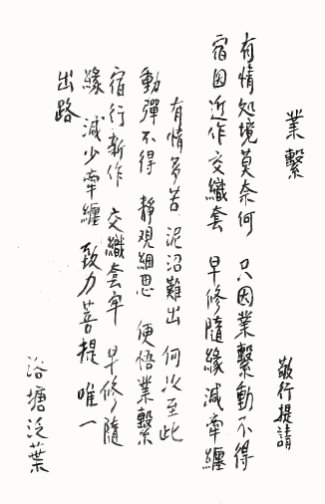 業繫
敬行提請
有情処境莫奈何 只因業繫動不得
宿因近作交織套 早修隨緣減牽纏
有情多苦 泥沼難出 何以至此
動彈不得 靜觀細思 便悟業繫
宿行新作 交織套牢 早修隨
緣 減少牽纏 致力菩提 唯一
出路
浴塘泛葉